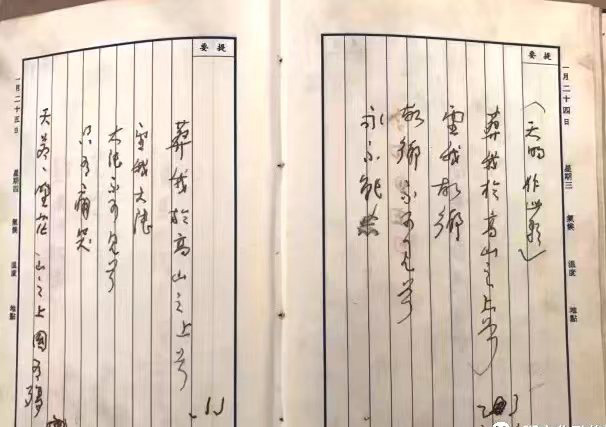 提要
一月二十四日 星期三 氣候 溫度 地點
（天明作此歌）
葬我於高山之上兮
望我故鄉
故鄉不可見兮
永不能忘
提要
葬我於高山之上兮
望我大陸
大陸不可見兮
只有痛哭
天蒼〻野茫〻山之上國有殤
一月二十五日 星期四 氣候 溫度 地點